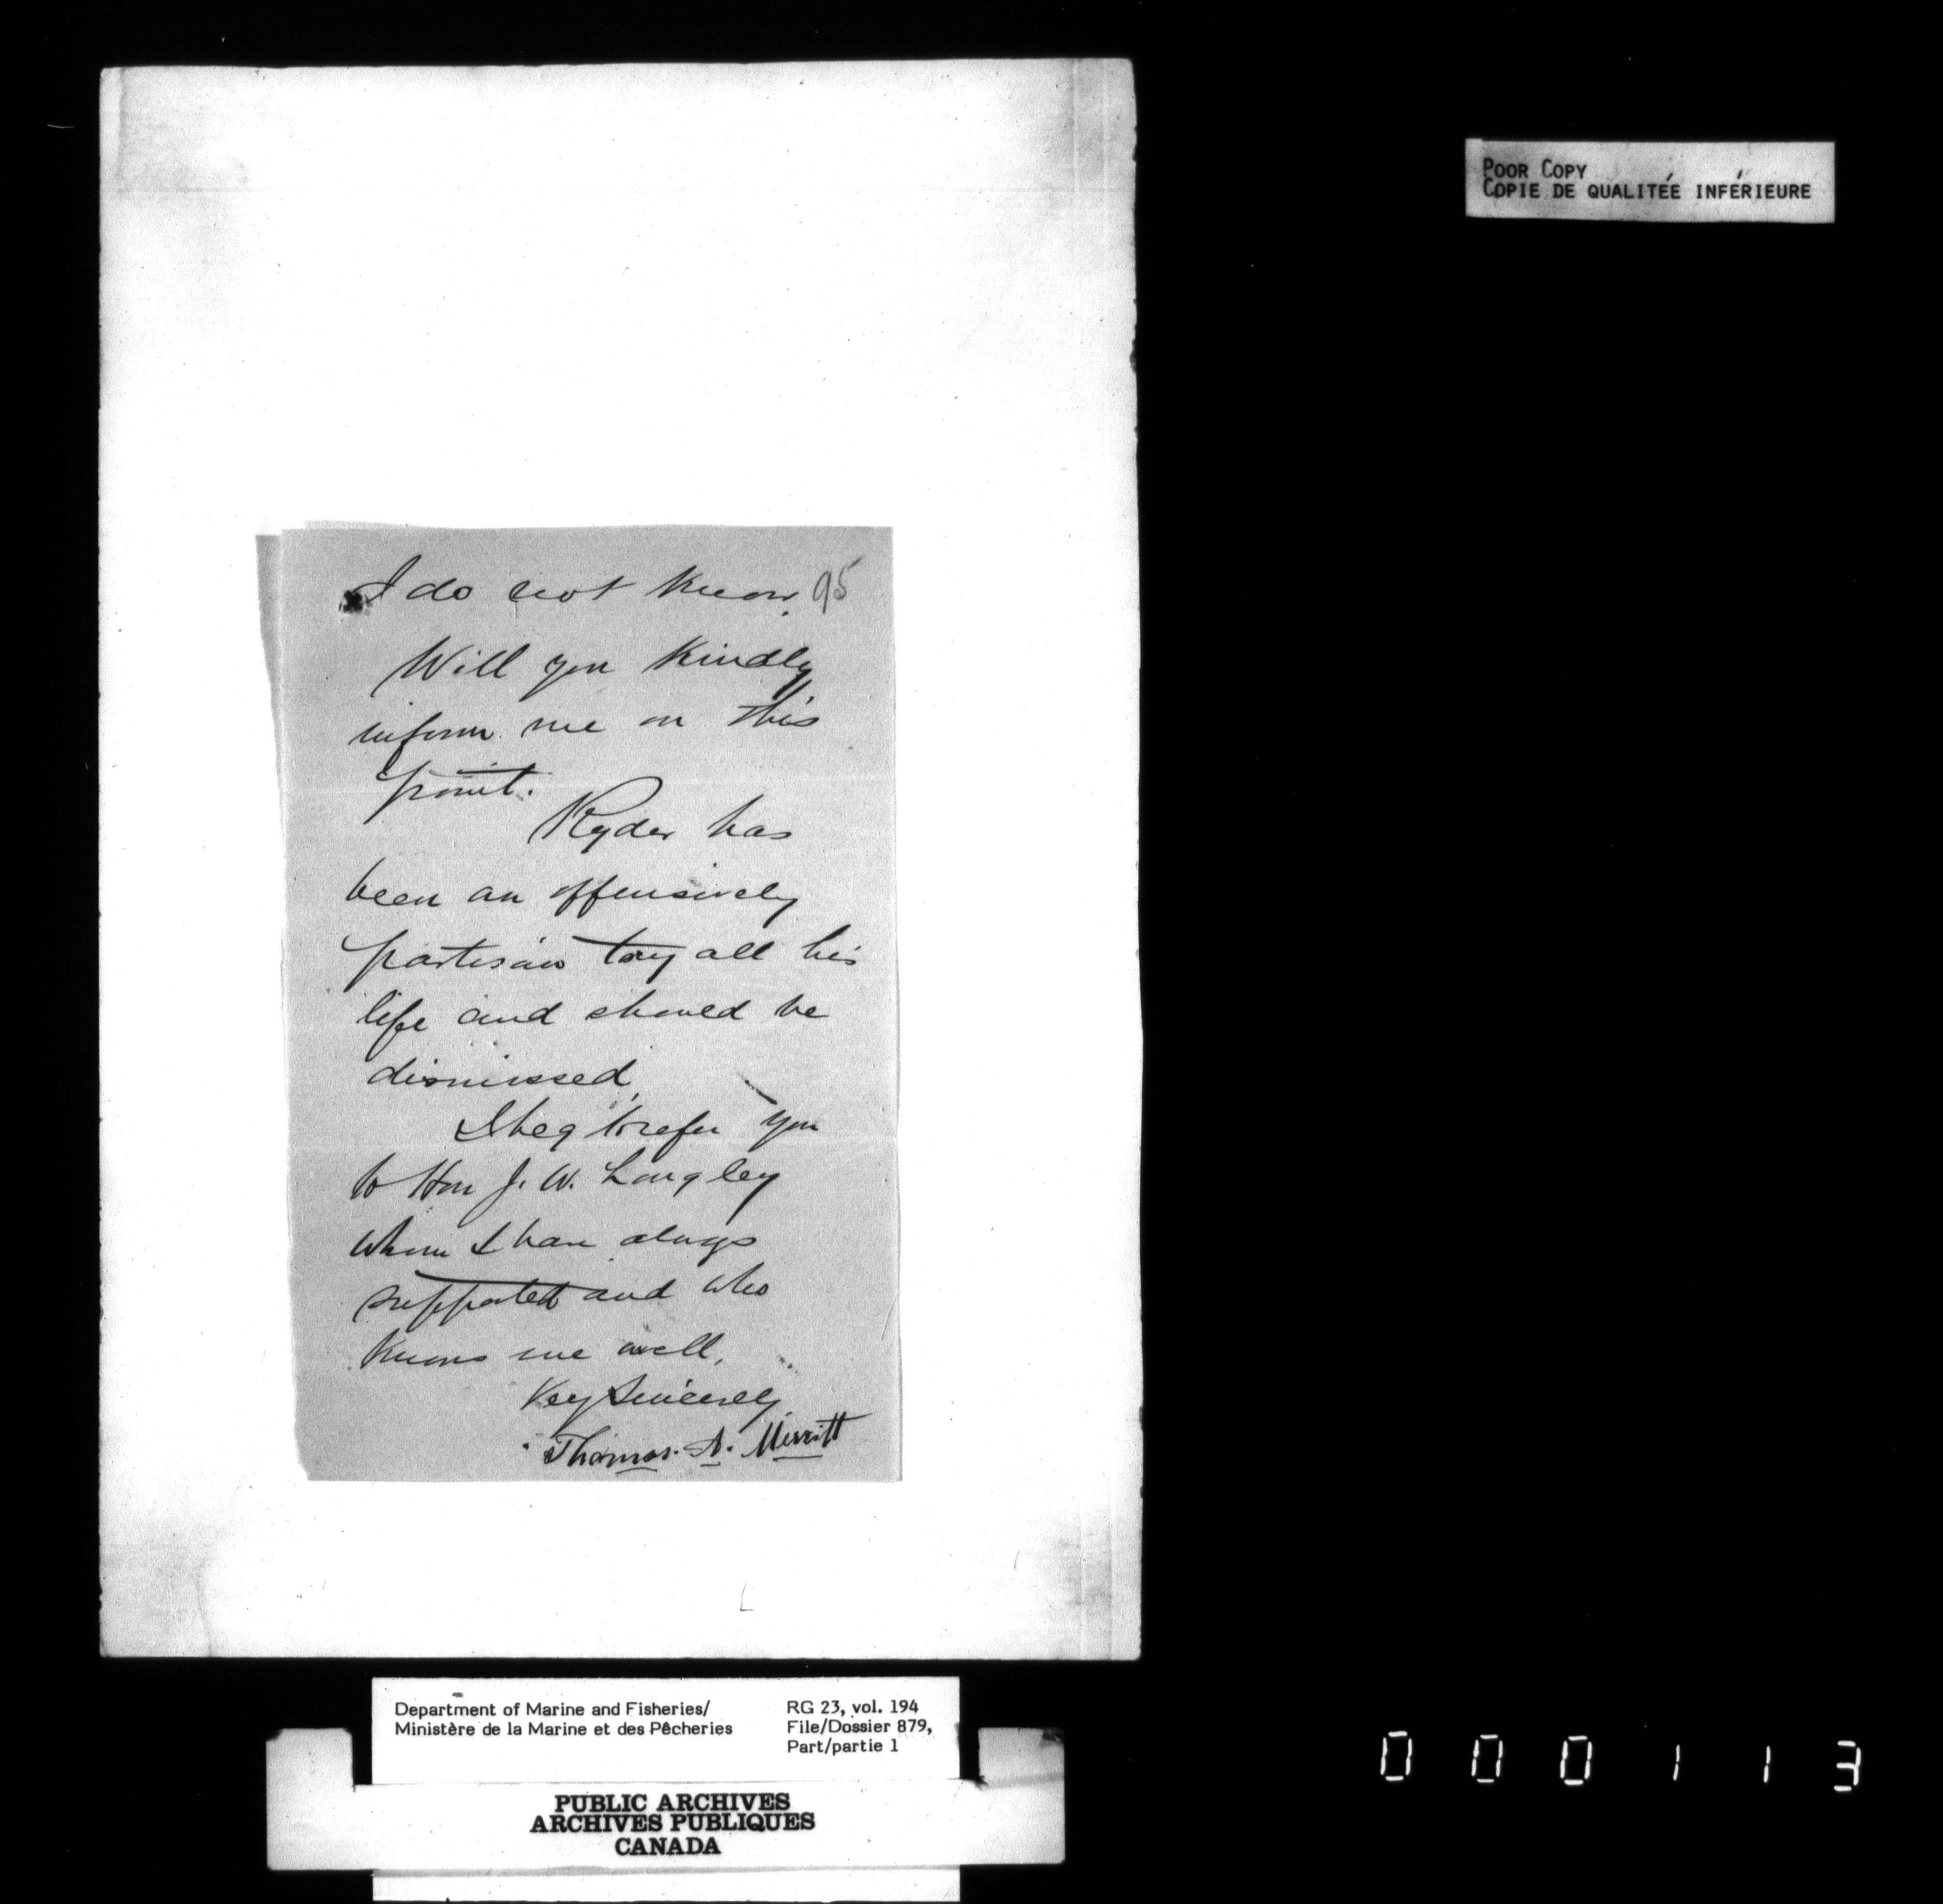 POOR COPY
COPIE DE QUALITÉE INFÉRIEURE
I do not know. 95
Will you kindly
inform me on this
point.
Ryder has
been an offensively
partisan tory all his
life and should be
dismissed.
I beg to refer you
to Hon J. W. Longley
whom I have always
supported and who
knows me well.
Very Sincerely
Thomas. A. Merritt
Department of Marine and Fisheries/
Ministère de la Marine et des Pêcheries
RG 23, vol. 194
File/Dossier 879,
Part/partie 1
PUBLIC ARCHIVES
ARCHIVES PUBLIQUES
CANADA
000113